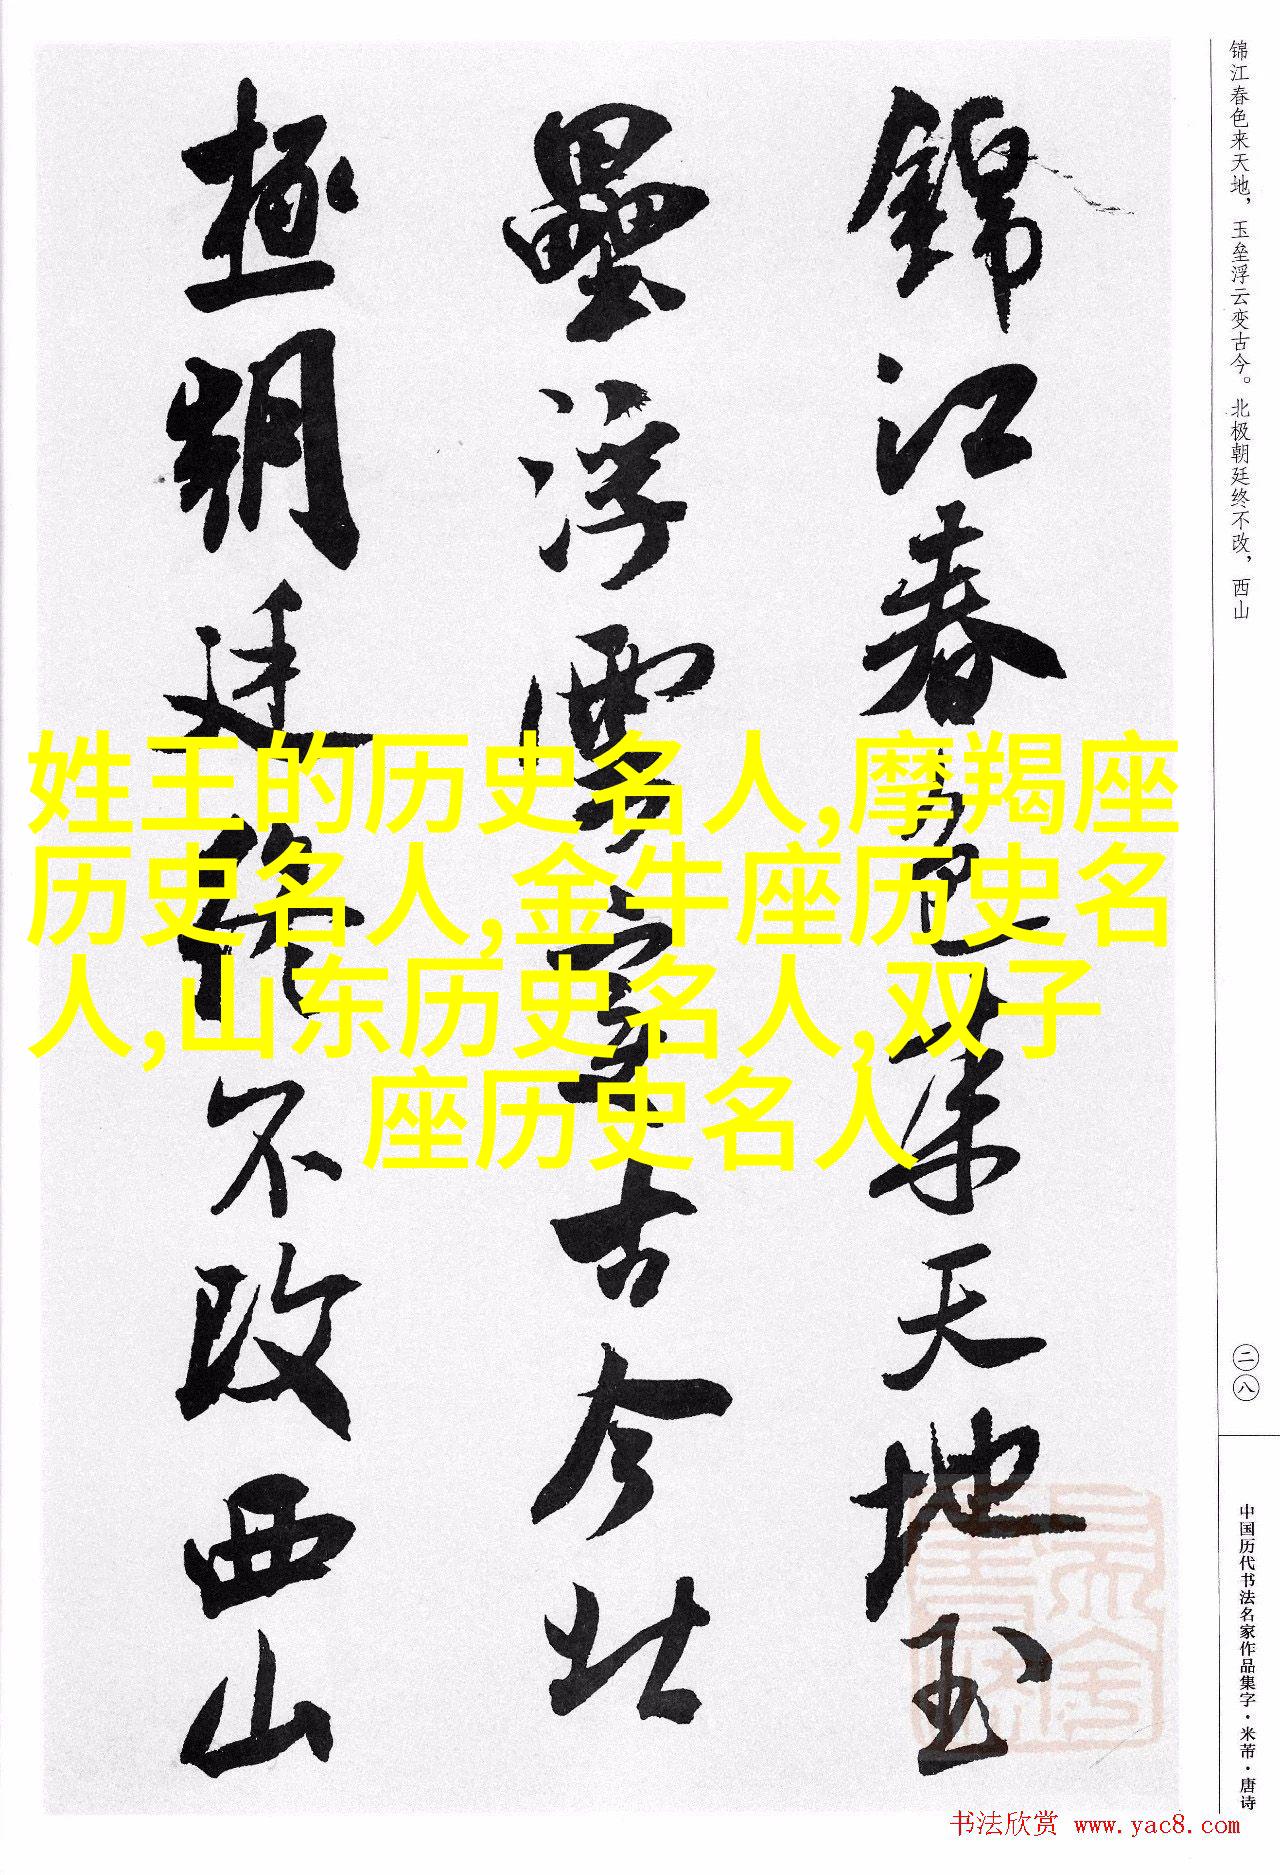 锦江春色来天地，玉垒浮云变古今。北极朝廷终不改，西山
錦江春色来天地玉
壘浮雲變古今北
極朝廷終不改西山
姓王的历史名人,摩羯座
历史名人,金牛座历史名
人,山东历史名人,双子
座历史名人
二八
中国历代书法名家作品集字·米芾·唐诗
书法欣赏 www.yac8.com